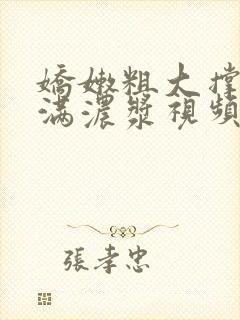 嬌嫩粗大撐
滿濃漿視頻
張孝忠